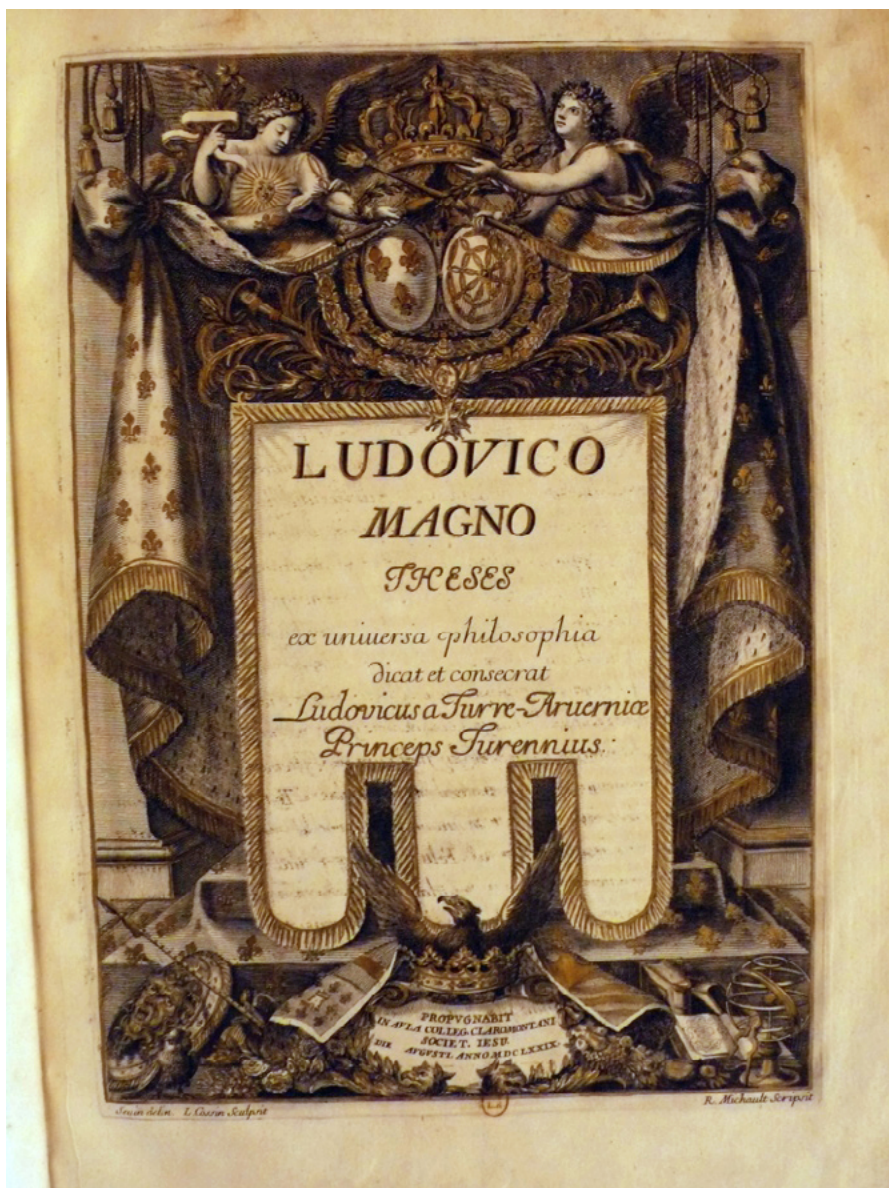 LUDOVICO
MAGNO
THESES
ex uniuersa philosophia
dicat et consecrat
Ludovicus a Turre-Aruerniæ
Princeps Turennius.
PROPVGNABIT
IN AVLA COLLEG. CLAROMONTANI
SOCIET. IESV.
DIE AVGVSTI. ANNO MDCLXXIX.
delin. L. Cossin Sculpsit
R. Michault Scripsit